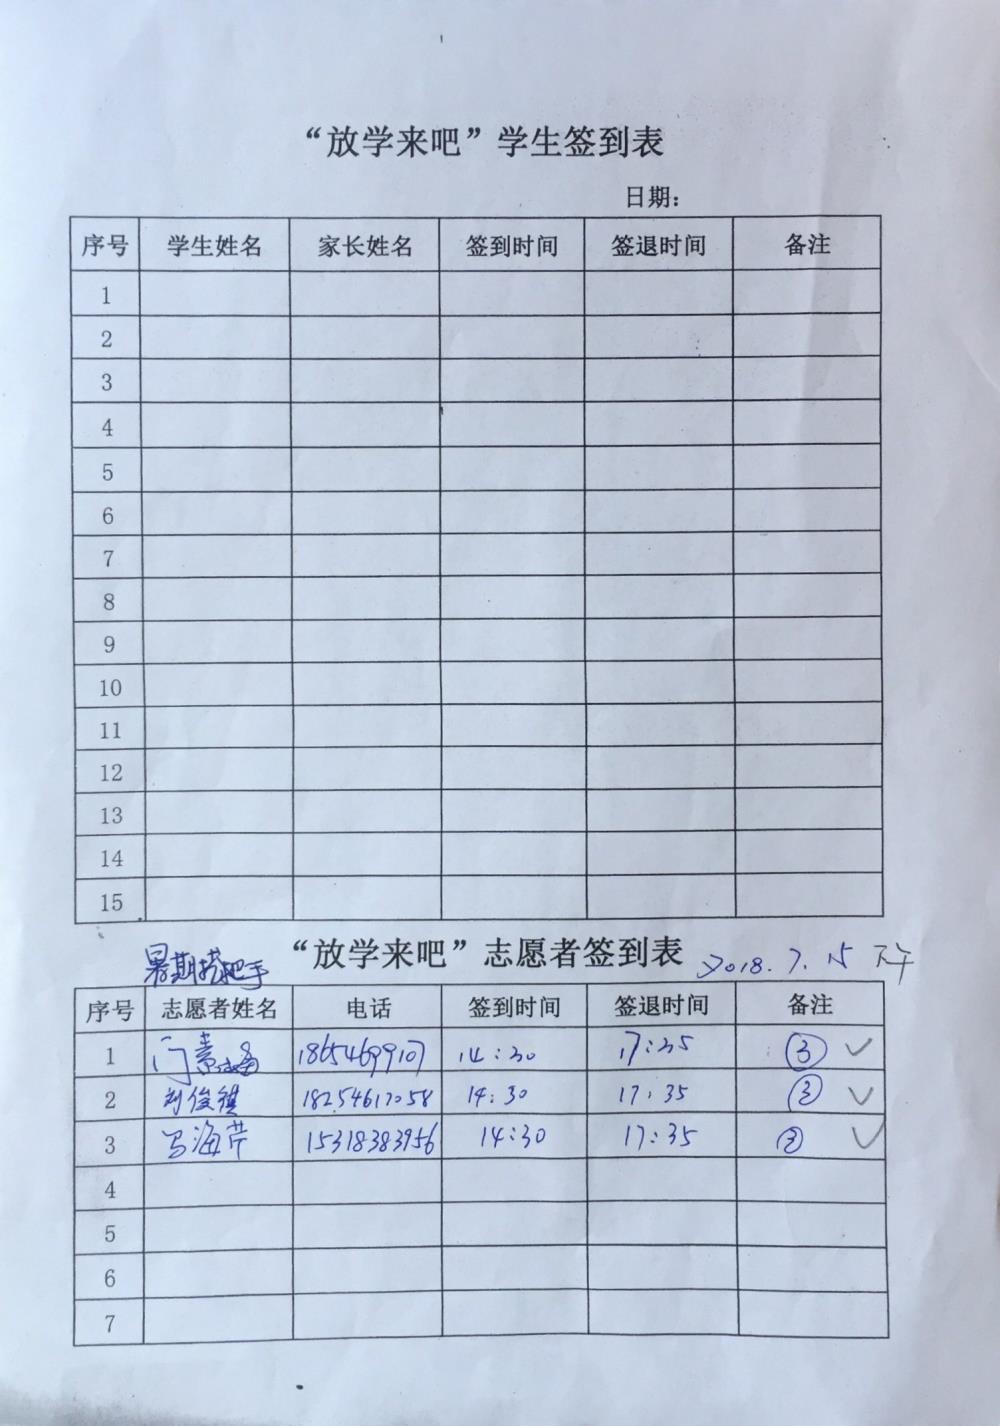 “放学来吧”学生签到表
日期：
序号 学生姓名 家长姓名 签到时间 签退时间 备注
1
2
3
4
5
6
7
8
9
10
11
12
13
14
15
暑期搭把手 “放学来吧”志愿者签到表 2018.7.15 下午
序号 志愿者姓名 电话 签到时间 签退时间 备注
1 门素 18654699107 14:30 17:35 ③ ✓
2 刘俊祺 18254617058 14:30 17:35 ③ ✓
3 马海芹 15318383956 14:30 17:35 ③ ✓
4
5
6
7